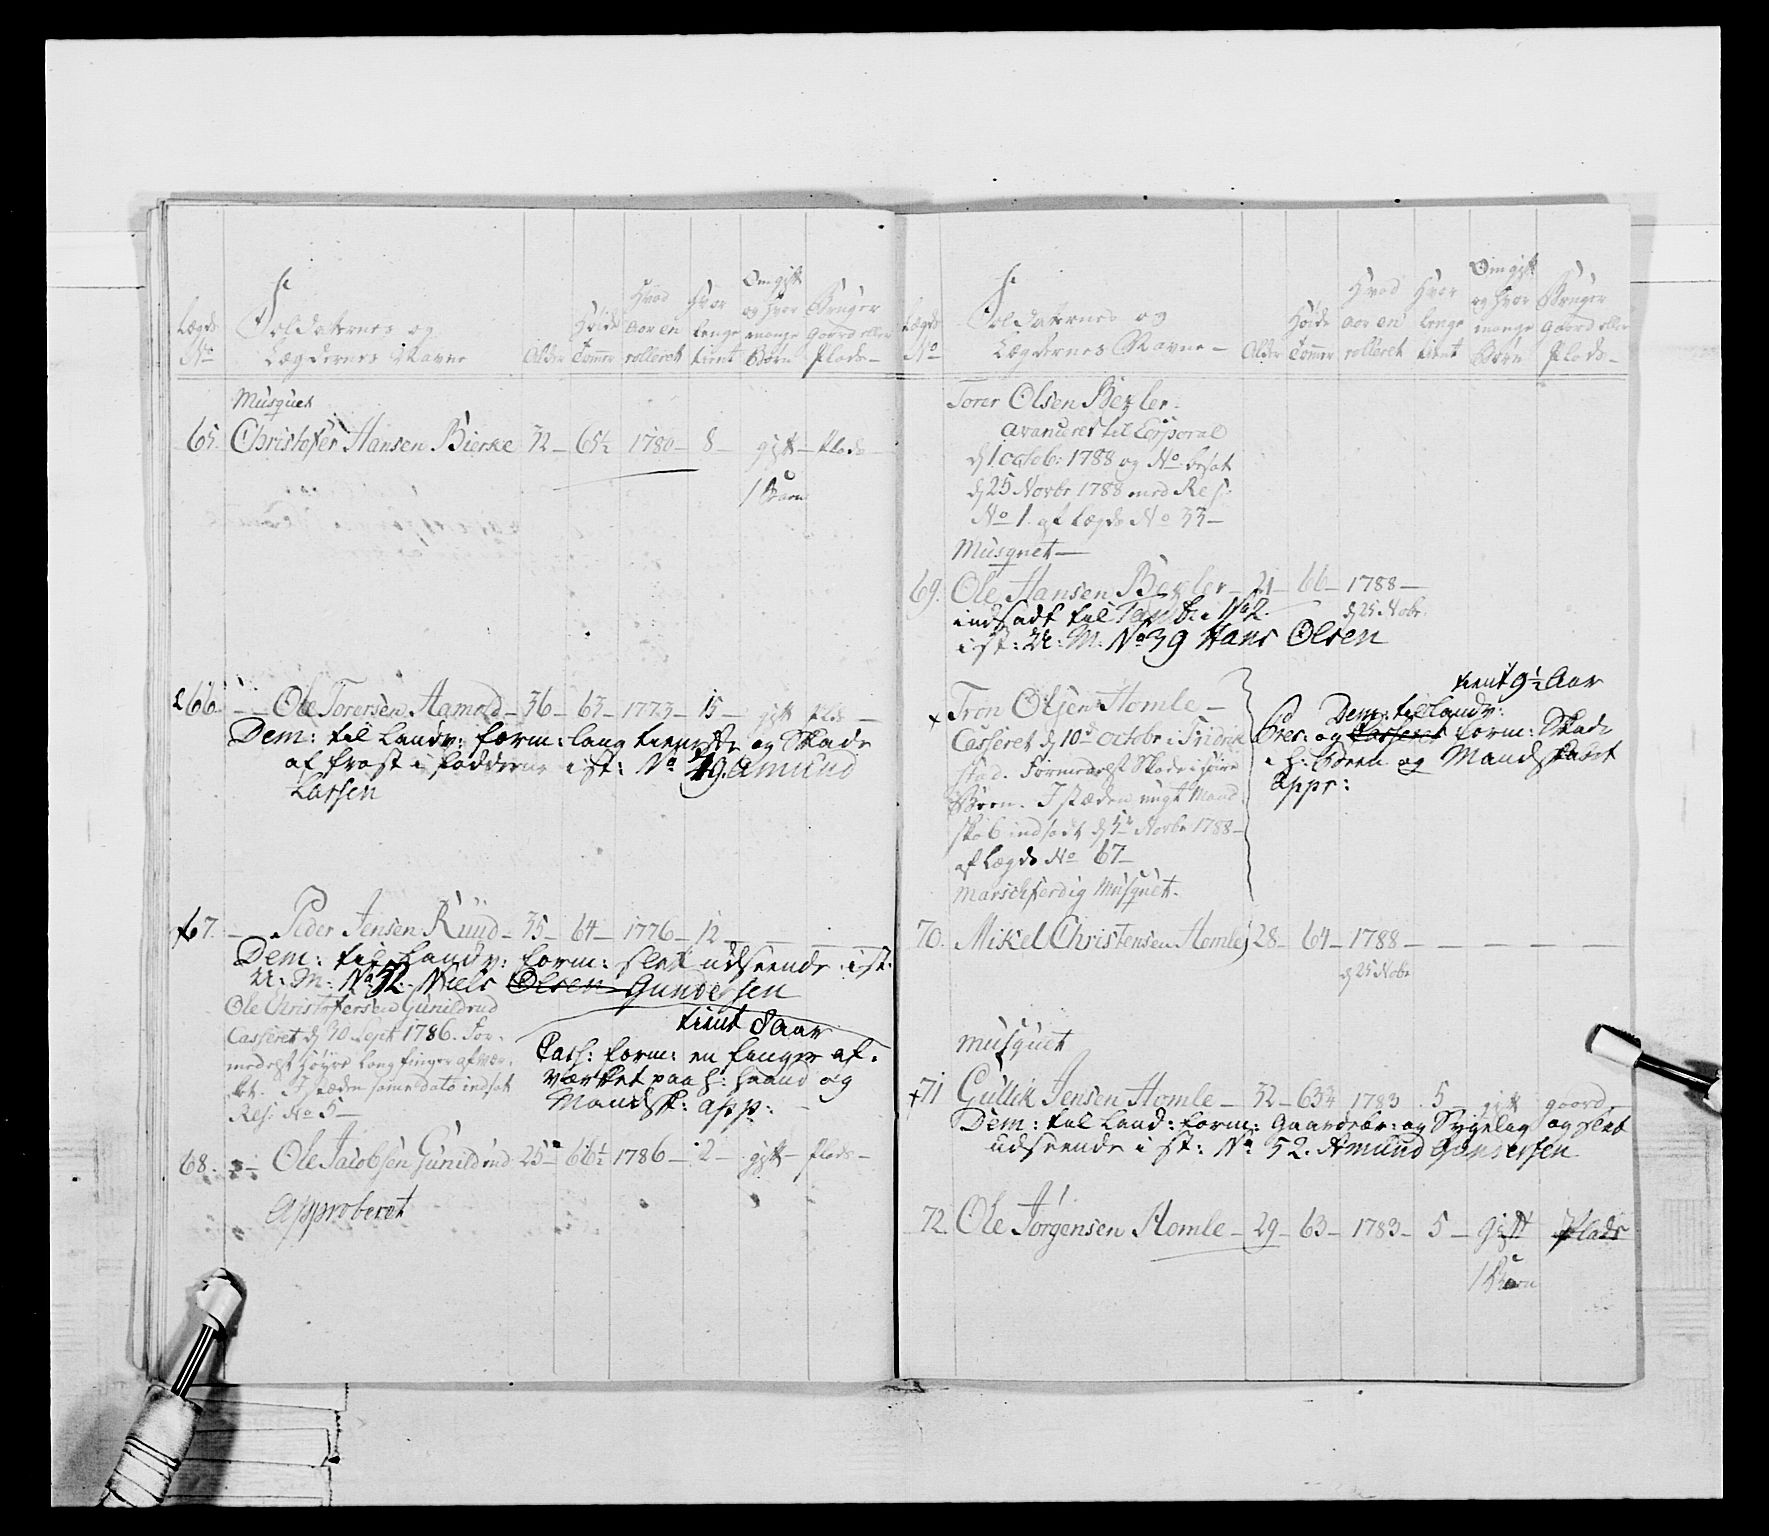 Lægds No
Soldaternes og Lægdernes Navne
Alder
Höide Tomer
Hvad Aar en rolleret
Hvor lenge tient
Om gift og hvor mange Börn
Bruger Gaard eller Plads
Musquet
65. Christofer Hansen Bierke 32 – 65½ 1780 – 8 – gift – Plads –
1 Barn
66. – Ole Torersen Aamold – 36 – 63 – 1773 – 15 – gift Plds –
Dem: til Landv: form: lang tieneste og Skade
af frost i födderne ist: No 49. Amund
Larsen
67. – Peder Jensen Ruud – 35 – 64 – 1776 – 12 –
Dem: til Landv: form: slet udseende ist:
U: M: No 52. Niels Olsen Gundersen
Ole Christofersen Gunildrud
Casseret d 30 Sept 1786. For-
medelst Höyre Long finger afvær-
ket. I stæden samme dato indsat
Res: No 5 –
tient 8 Aar
Cass: form: en finger af-
værket paa h: haand og
Mandsk: app:
68. – Ole Jacobsen Gunildrud 25 – 66½ 1786 – 2 – gift – Plads –
Approberet
Lægds No
Soldaternes og Lægdernes Navne –
Alder
Höide Tomer
Hvad Aar en rolleret
Hvor lenge tient
Om gift og hvor mange Börn
Bruger Gaard eller Plads –
Torer Olsen Bexler.
avanceret til Corporal
d 1 octob: 1788 og No besat
d 25 Novbr 1788 med Res:
No 1. af Lægds No 33 –
Musquet –
69. Ole Hansen Bexler – 21 – 66 – 1788 –
d 25 Nobr.
indsadt til No 2.
ist: U: M: No 39 Hans Olsen
Tron Olsen Homle –
Casseret d 10d octobr i Fridrik
stad. Formedelst Skade i höire
Been. I stæden nngt Mand
skab indsadt d 5te Novbr 1788 –
af Lægds No 67 –
Marschferdig Musquet.
tient 9½ Aar
Dem: til Landv:
Pres: og Casseret form: Skade
i h: Been og Mandskabet
appr:
70. Mikel Christensen Homle 28 – 64 – 1788 – – – – –
d 25 Nobr
Musquet
71 Gullik Jensen Homle – 32 – 63¾ 1783 . 5 – gift gaard
Dem: til Land: form: Gaardbr: og Sygelig og slet
udseende i st: No 52. Amund Gundersen
72. Ole Jörgensen Homle – 29 – 63 – 1783 – 5 – gift Plads
1 Barn